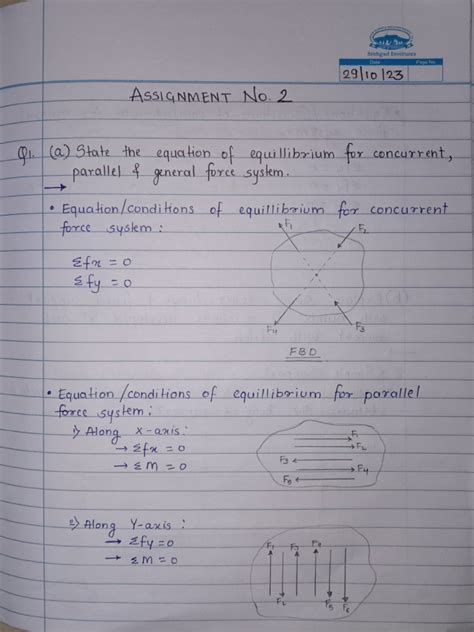 Sinhgad Institutes
Date
Page No.
29/10/23
ASSIGNMENT NO. 2
Q1. (a) State the equation of equillibrium for concurrent,
parallel & general force system.
→
• Equation/conditions of equillibrium for concurrent
force system :
F1
F2
Σfx = 0
Σfy = 0
F4
F3
FBD
• Equation/conditions of equillibrium for parallel
force system :
1) Along X-axis :
→ Σfx = 0
→ ΣM = 0
F1
F2
F3
F4
F5
2) Along Y-axis :
→ Σfy = 0
→ ΣM = 0
F1
F3
F4
F2
F5
F6